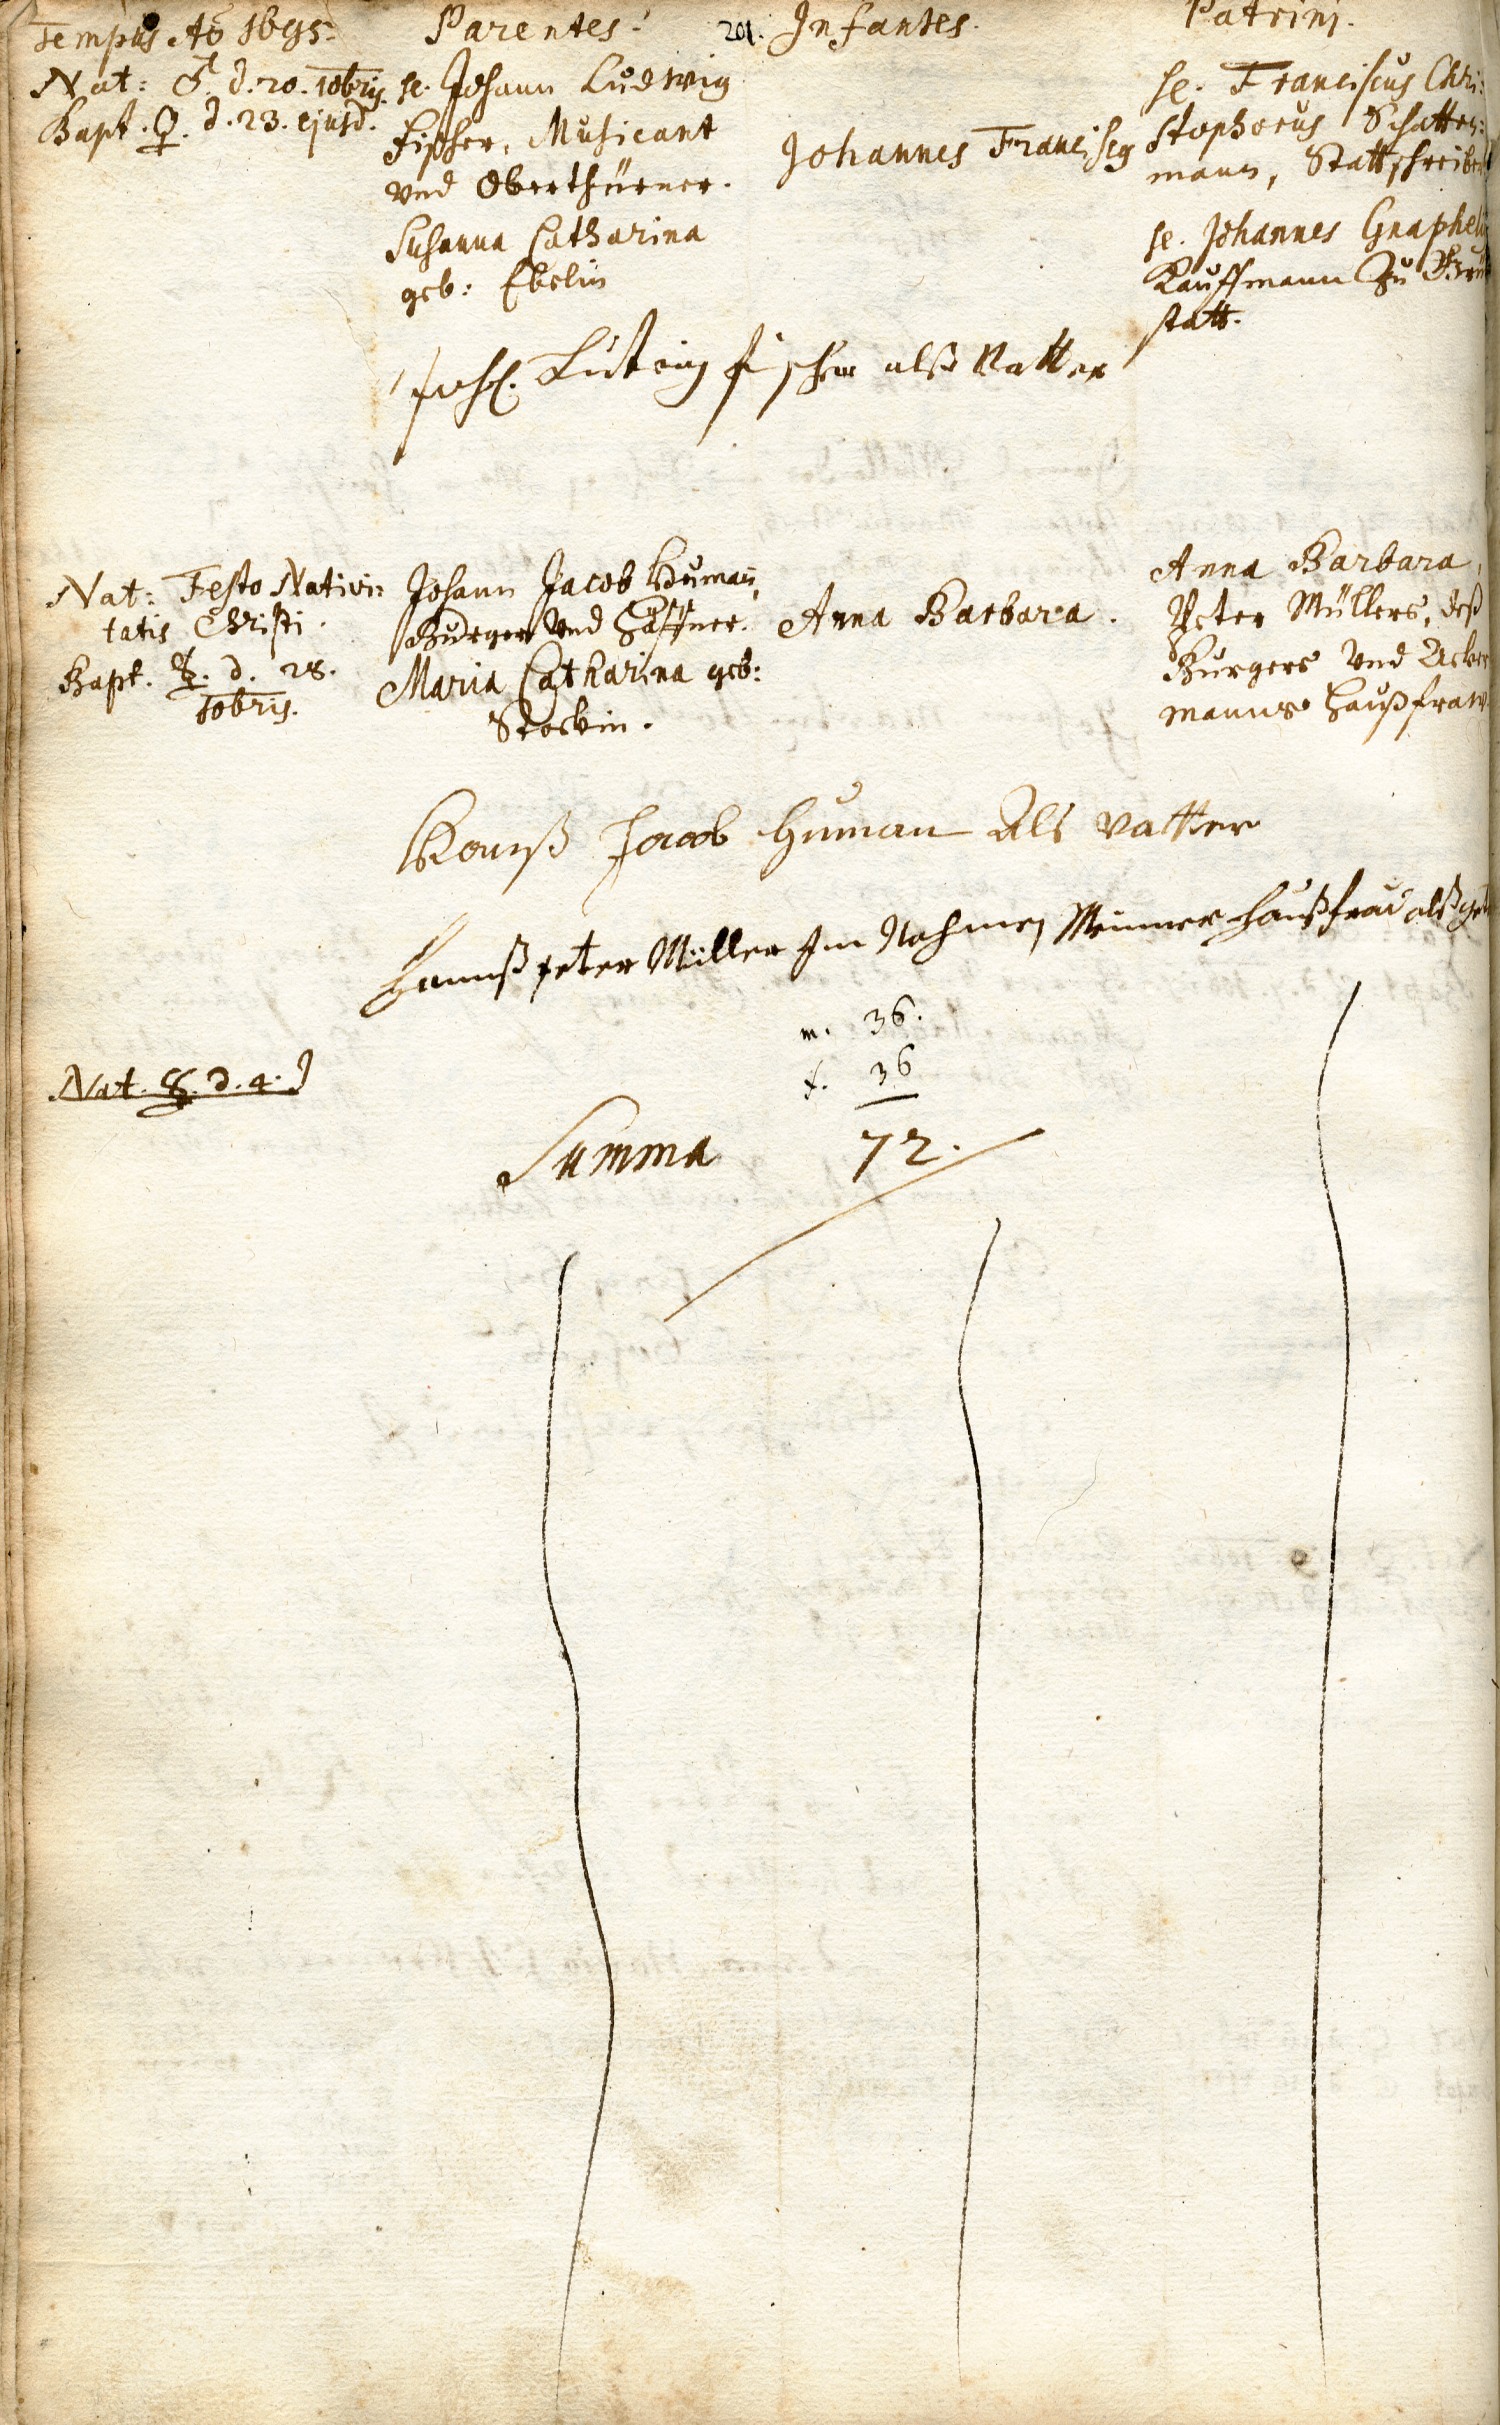 Tempus Aō 1695.
Parentes.
201.
Infantes.
Patrini.
Nat: ♂. d. 20. 10bris.
Bapt. ♀. d. 23. ejusd.
H. Johann Ludwig
Fischer, Musicant
und Oberthürner.
Susanna Catharina
geb: Ebelin
Johannes Franciscg
H. Franciscus Chri:
stophorus Schatter:
mann, Stattschreiber
H. Johannes Graphel
Kauffmann zu
statt.
Joh. Ludwig fischer alß Vatter
Nat: Festo Nativi:
tatis Christi.
Bapt. d. 28.
10bris.
Johann Jacob Human,
Burger und Häffner.
Maria Catharina geb:
Stockin.
Anna Barbara.
Anna Barbara,
Peter Müllers, deß
Burgers und Acker
manns Haußfraw.
Hanß Jacob Human Als vatter
Hannß peter Müller Im Nahmen Meiner haußfrau alß
m. 36.
f. 36
Nat. ☿. d. 4. J
Summa 72.